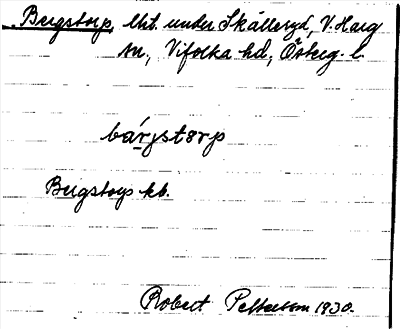 Bergstorp, lht. under Skålleryd, V. Harg
sn, Vifolka hd, Österg. l.
bárjstərp
Bergstorp kb.
Robert Pettersson 1930.